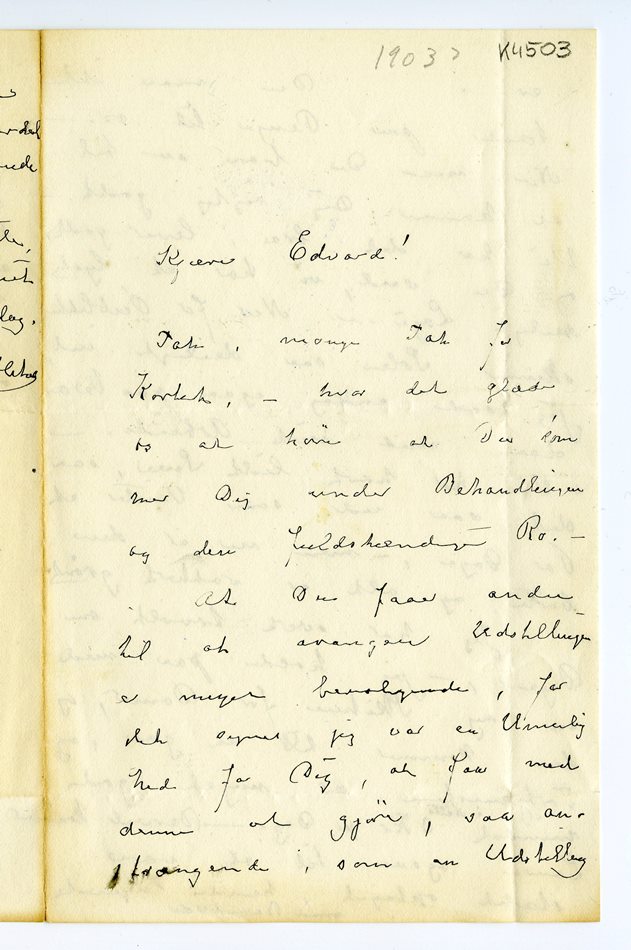 1903?
K4503
Kjære Edvard!
Tak, mange Tak for
Kortet, – hvor det glæder
os at høre at Du kom
mer Dig under Behandlingen
og den fuldstændige Ro. –
At Du faar andre
til at arangere Udstillingen
er meget beroligende, for
det synes jeg var en Umulig
hed for Dig, at faa med
denne at gjøre, saa an-
strængende, som en Udstilling